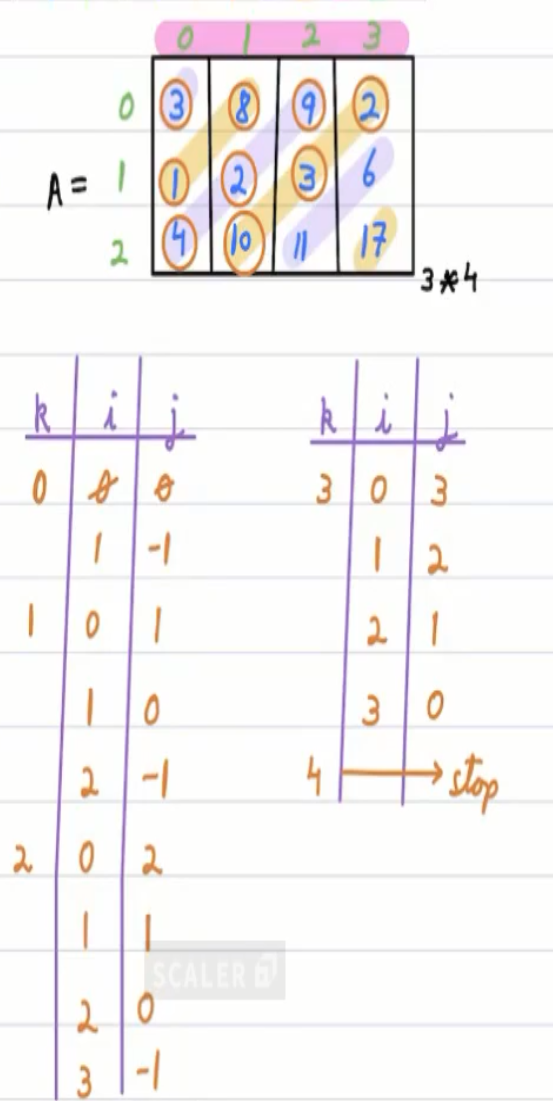 0 1 2 3
0 3 8 9 2
A = 1 1 2 3 6
2 4 10 11 17
3*4
k i j
0 0 0
1 -1
1 0 1
1 0
2 -1
2 0 2
1 1
2 0
3 -1
k i j
3 0 3
1 2
2 1
3 0
4 → stop
SCALER